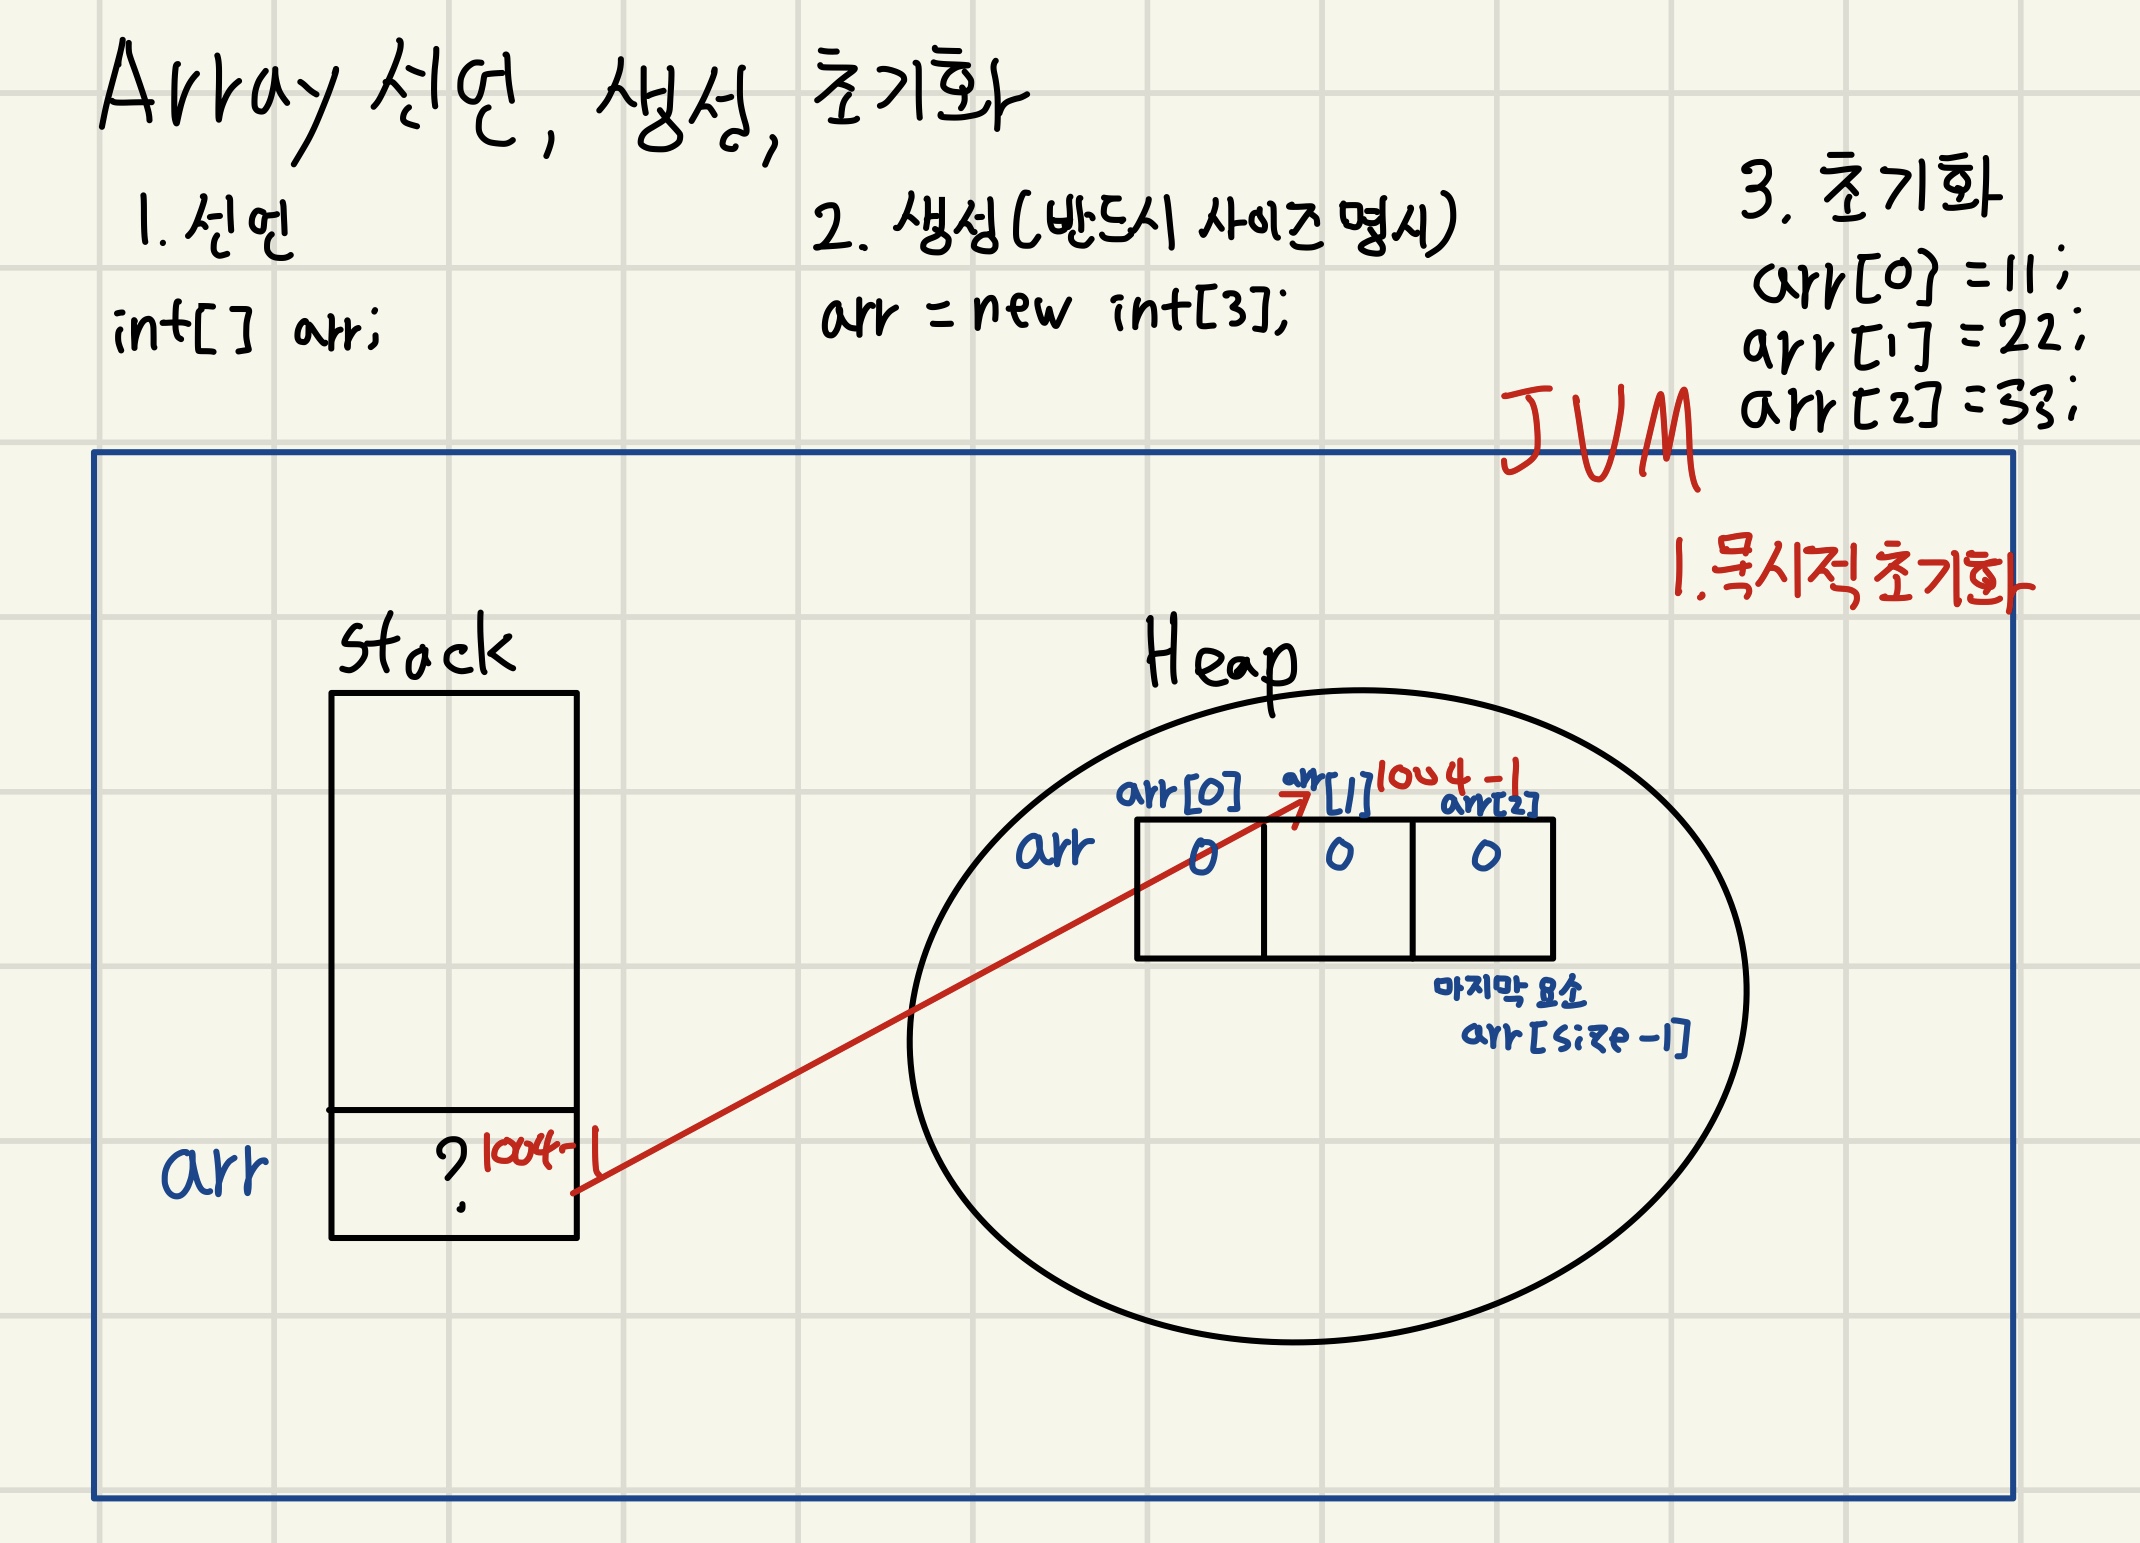 Array 선언, 생성, 초기화
1. 선언
int[] arr;
2. 생성(반드시 사이즈 명시)
arr = new int[3];
3. 초기화
arr[0] = 11;
arr[1] = 22;
arr[2] = 33;
JVM
1. 묵시적 초기화
Stack
Heap
arr[0] arr[1] 1004-1
arr[2]
arr 0 0 0
마지막 요소
arr[size-1]
arr ? 1004-1